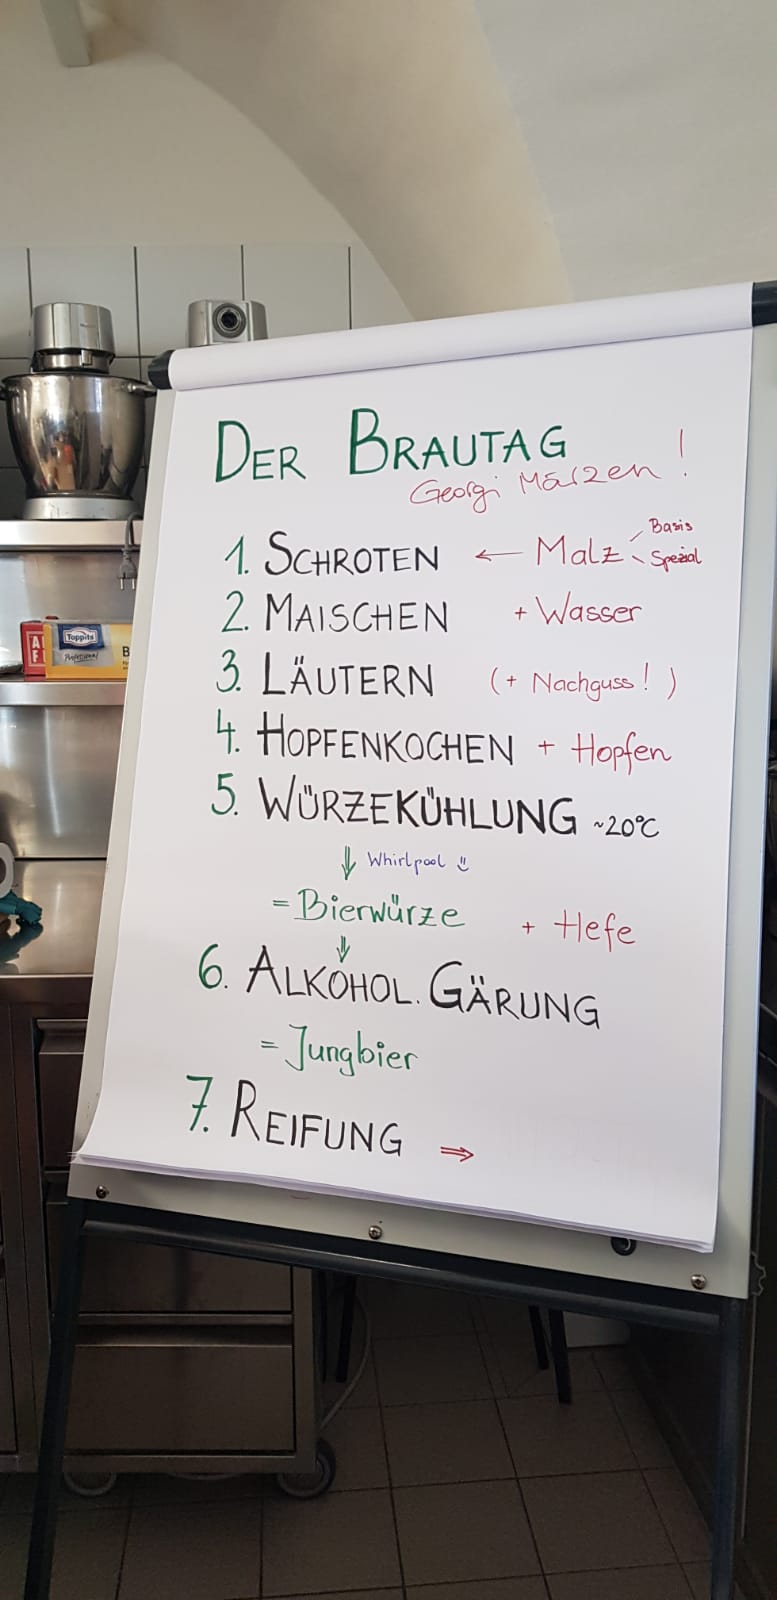 DER BRAUTAG
Georgi Märzen!
1. SCHROTEN ← Malz Basis
Spezial
2. MAISCHEN + Wasser
3. LÄUTERN (+ Nachguss!)
4. HOPFENKOCHEN + Hopfen
5. WÜRZEKÜHLUNG ~20°C
⇓ Whirlpool ü
= Bierwürze + Hefe
⇓
6. ALKOHOL. GÄRUNG
= Jungbier
7. REIFUNG ⇒
Toppits
Professional
B
A
F